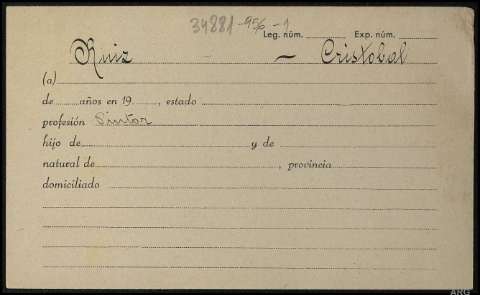 34881-956-1
Leg. núm. Exp. núm.
Ruiz — Cristobal
(a)
de años en 19 , estado
profesión Pintor
hijo de y de
natural de , provincia
domiciliado
ARG